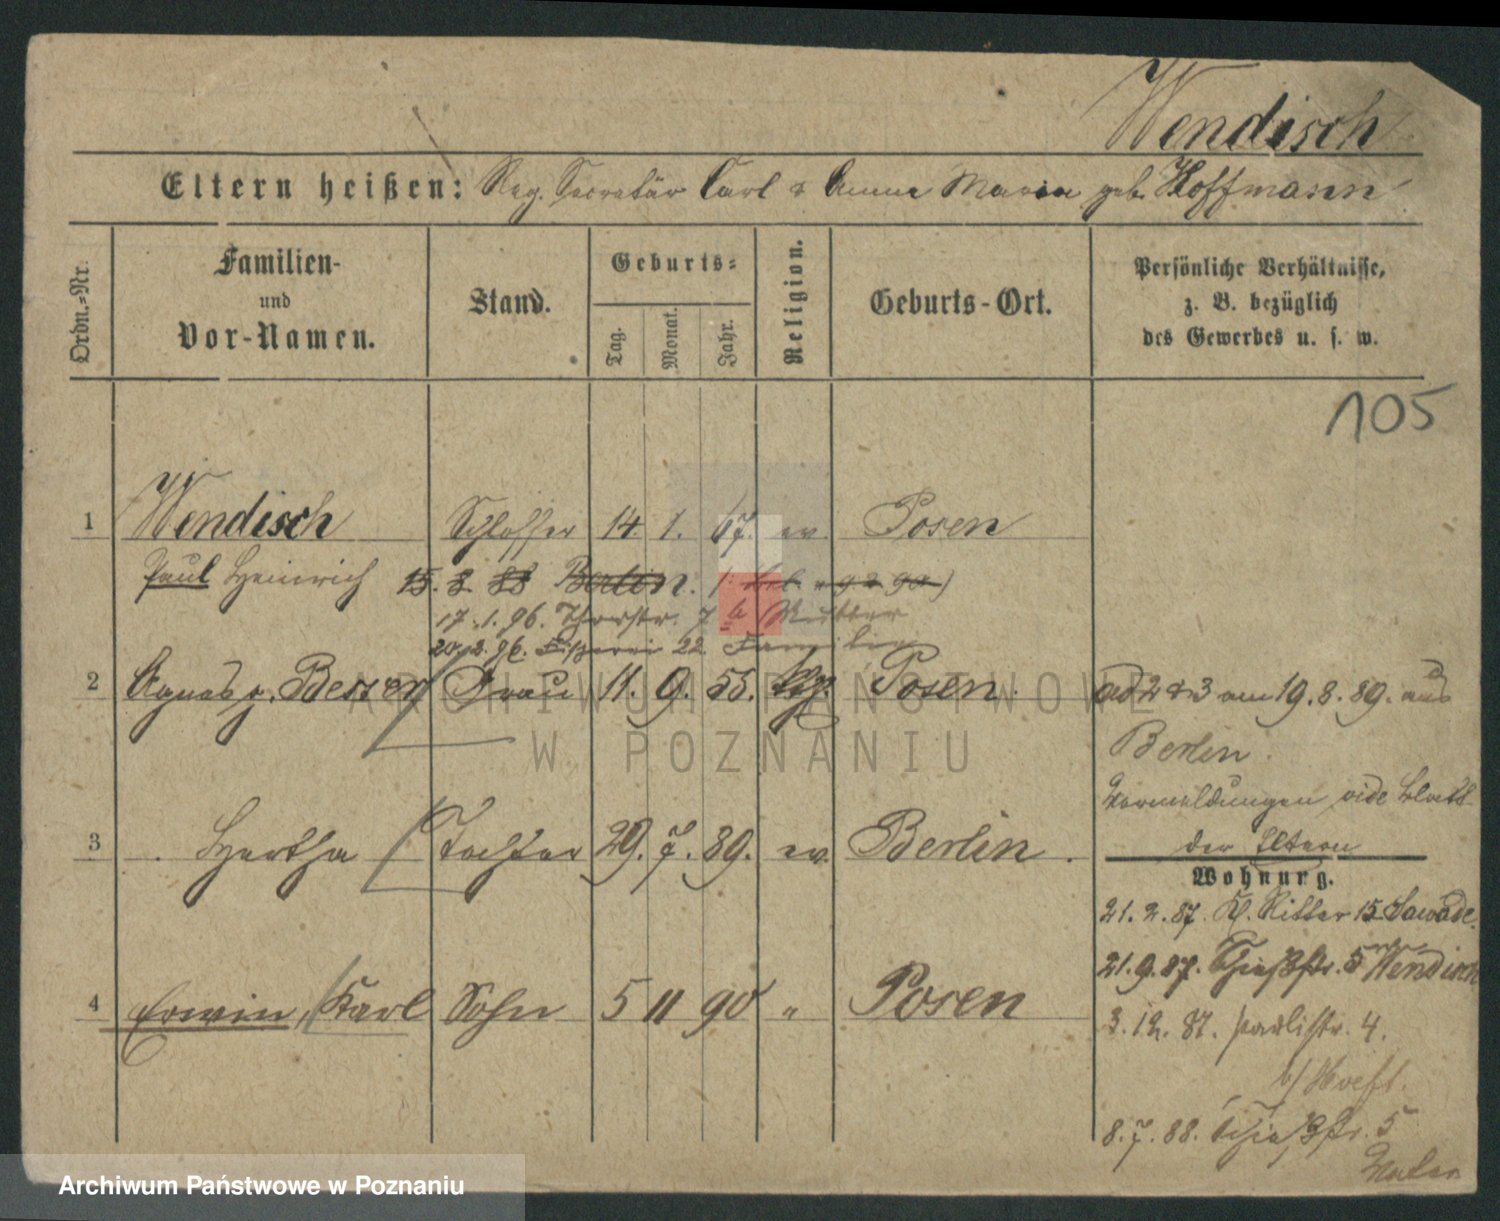 Wendisch
Eltern heißen: Reg. Secretär Carl & Anna Maria geb. Hoffmann
Ordn.-Nr.
Familien-
und
Vor-Namen.
Stand.
Geburts-
Tag.
Monat.
Jahr.
Religion.
Geburts-Ort.
Persönliche Verhältnisse,
z. B. bezüglich
des Gewerbes u. s. w.
105
1 Wendisch Schlosser 14. 1. 67. ev. Posen
Paul Heinrich 15. 8. 88 Berlin.
17.1.96. Thorstr. 7 Mutter
20.2.96. 22 Familie
2 Agnes g. Besser Frau 11. 9. 55. Posen.
ad 2 & 3 am 19.8.89. aus
Berlin.
Vormeldungen vide Blatt
der Eltern
3 Hertha Tochter 29. 7. 89. ev. Berlin.
Wohnung.
21.2.87. Kl. Ritter 15
21.9.87. Schießstr. 5 Wendisch
4 Erwin, Karl Sohn 5 11 90 " Posen
3.12.87. Paulistr. 4.
b/ Hoeft.
8.7.88. Schießstr. 5
Vater
ARCHIWUM PAŃSTWOWE
W POZNANIU
Archiwum Państwowe w Poznaniu